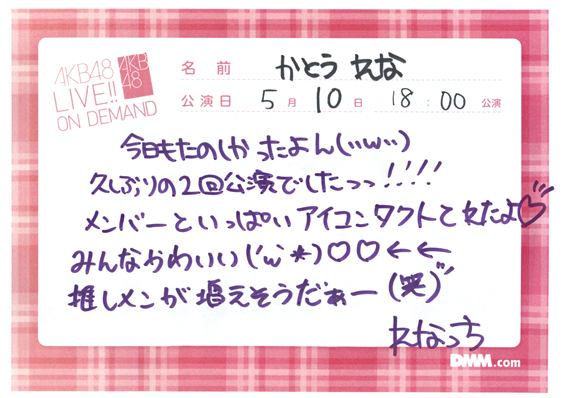 AKB48
LIVE!!
ON DEMAND
AKB
48
名前 かとうれな
公演日 5月10日 18:00公演
今日もたのしかったよん(´´ω´´)
久しぶりの2回公演でしたっっ!!!!
メンバーといっぱいアイコンタクトとれたよ♡
みんなかわいい(´ω`*)♡♡←←
推しメンが増えそうだぁー(笑)
れなっち
DMM.com